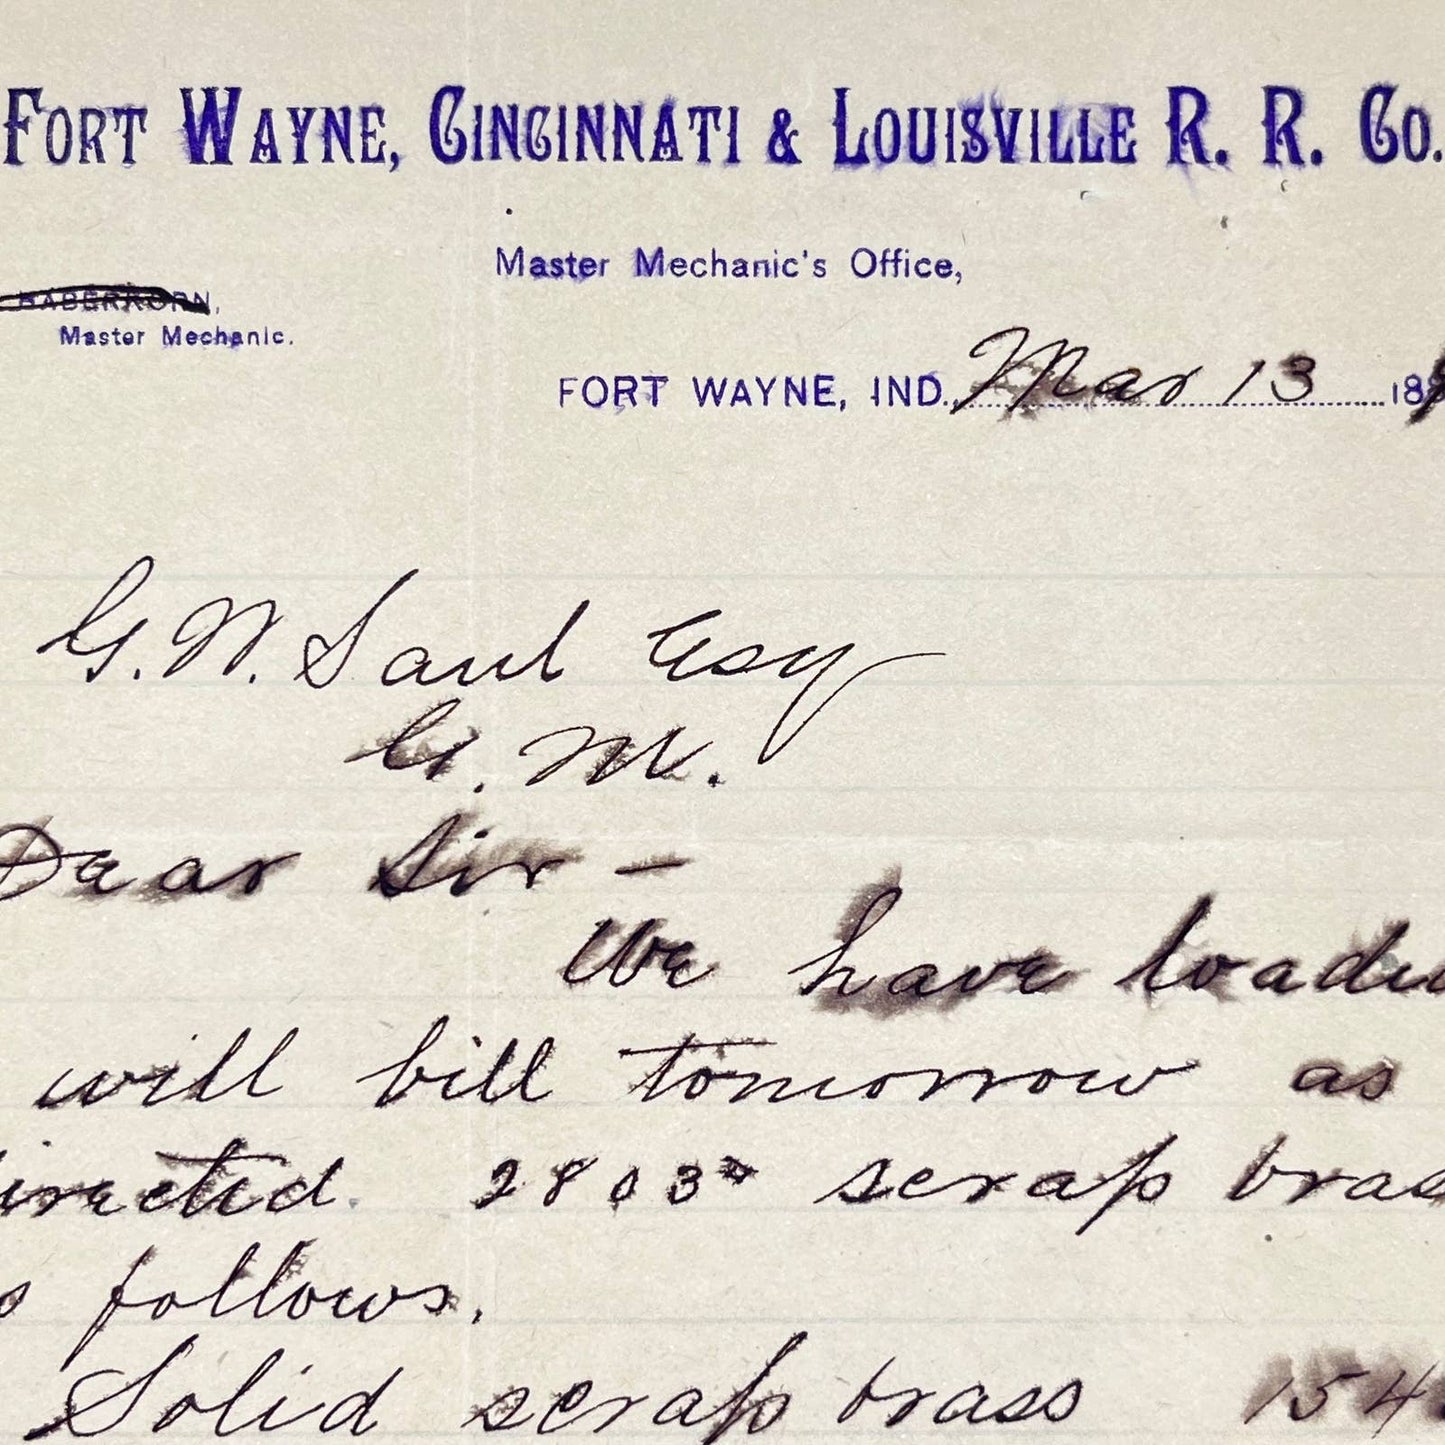 FORT WAYNE, CINCINNATI & LOUISVILLE R. R. CO.
Master Mechanic's Office,
HABERKORN,
Master Mechanic.
FORT WAYNE, IND. Mar 13 188
G. W. Saul Esq
G. M.
Dear Sir —
We have loaded
will bill tomorrow as
directed. 2803# scrap brass
as follows.
Solid scrap brass 154